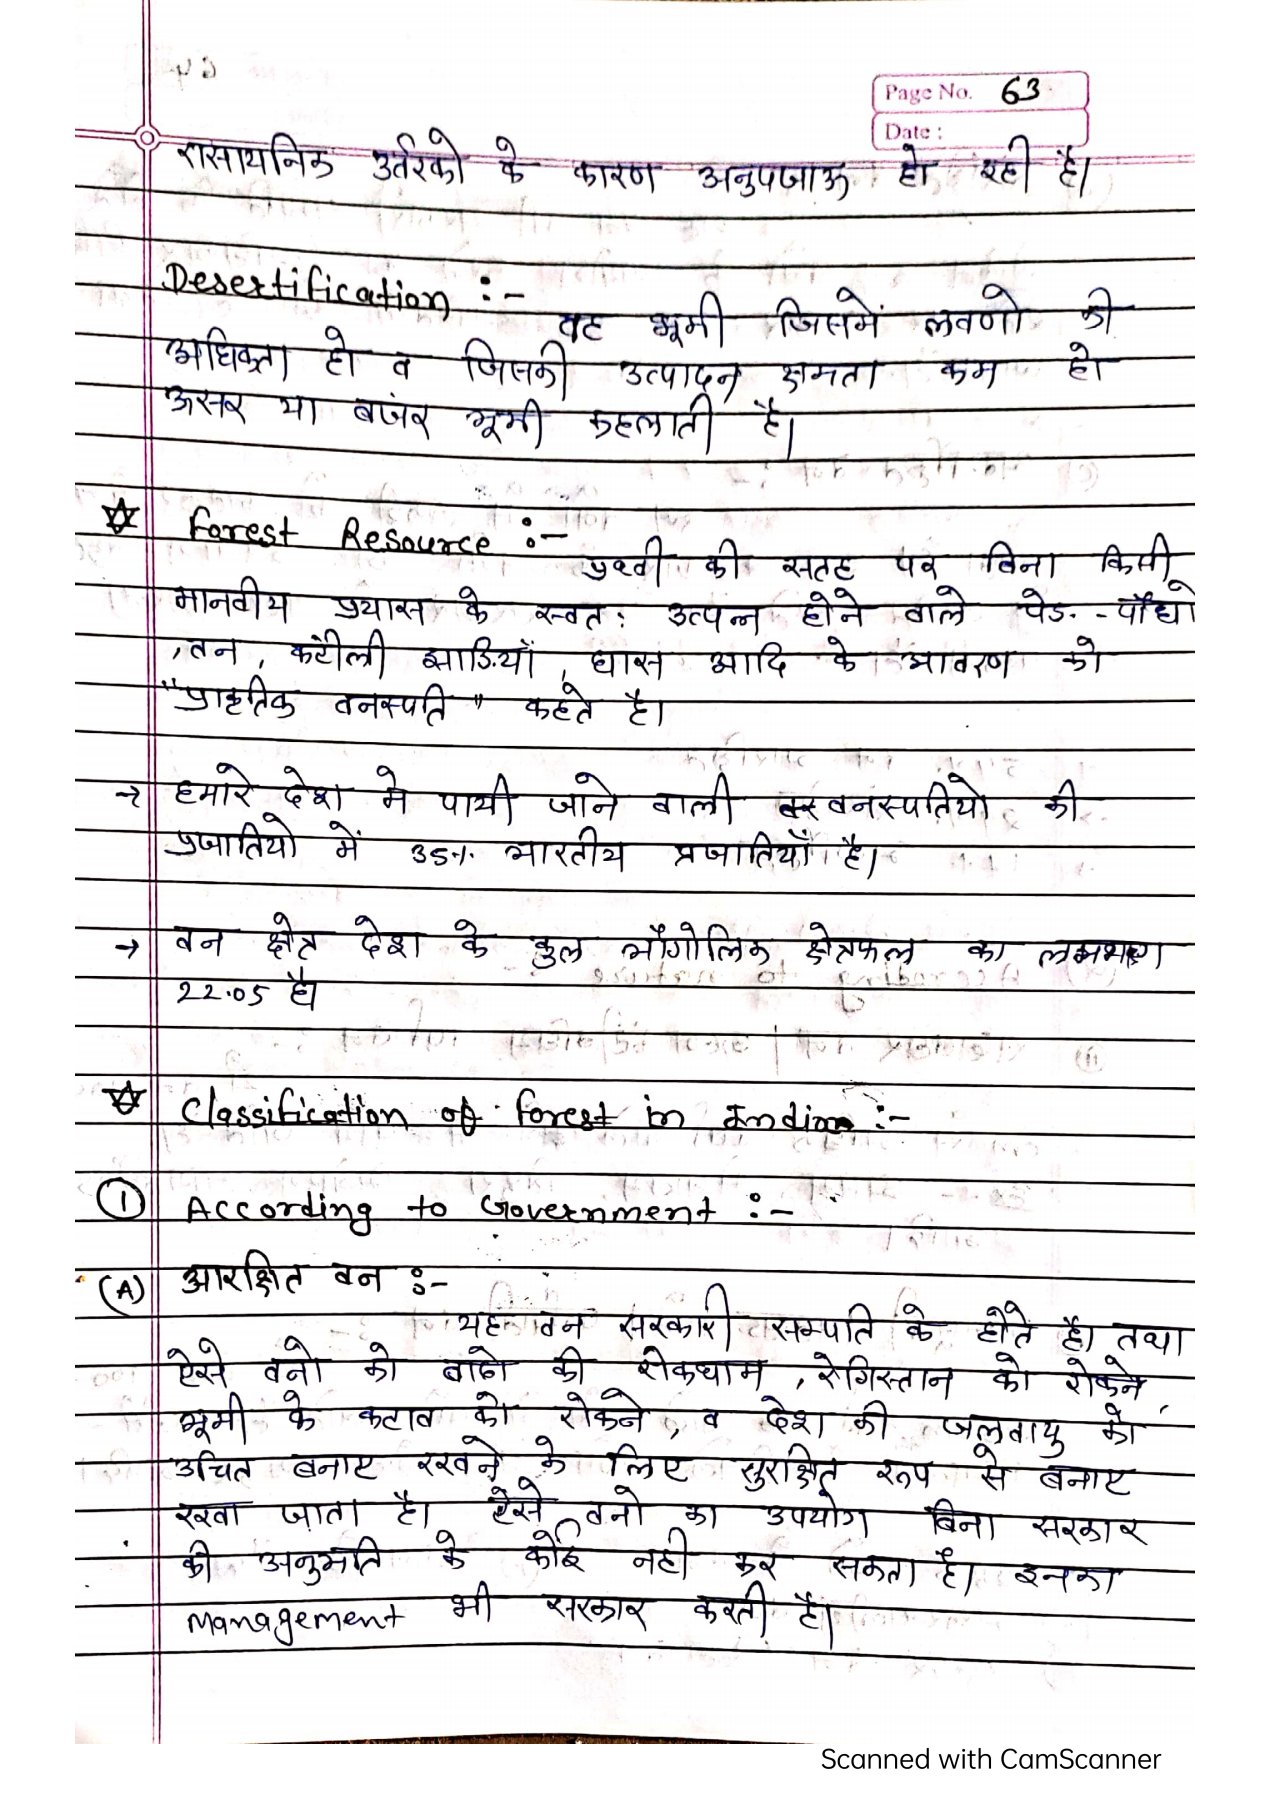 Page No. 63
Date :
रासायनिक उर्वरको के कारण अनुपजाऊ हो रही है।
Desertification :-
वह भूमी जिसमें लवणो की
अधिकता हो व जिसकी उत्पादन क्षमता कम हो
ऊसर या बजंर भूमी कहलाती है।
☆ Forest Resource :-
पृथ्वी की सतह पर बिना किसी
मानवीय प्रयास के स्वत: उत्पन्न होने वाले पेड़ - पौधो
, वन , कटीली झाडि़याँ , घास आदि के आवरण को
"प्राकृतिक वनस्पति" कहते है।
→ हमारे देश मे पायी जाने वाली वनस्पतियो की
प्रजातियो में 35% भारतीय प्रजातियाँ है।
→ वन क्षेत्र देश के कुल भौगोलिक क्षेत्रफल का लगभग
22.05 है
☆ Classification of forest in India :-
① According to Government :-
(A) आरक्षित वन :-
यह वन सरकारी सम्पति के होते है। तथा
ऐसे वनो को बाढो की रोकथाम , रेगिस्तान को रोकने ,
भूमी के कटाव को रोकने , व देश की जलवायु को
उचित बनाए रखने के लिए सुरक्षित रूप से बनाए
रखा जाता है। ऐसे वनो का उपयोग बिना सरकार
की अनुमति के कोई नही कर सकता है। इनका
Management भी सरकार करती है।
Scanned with CamScanner